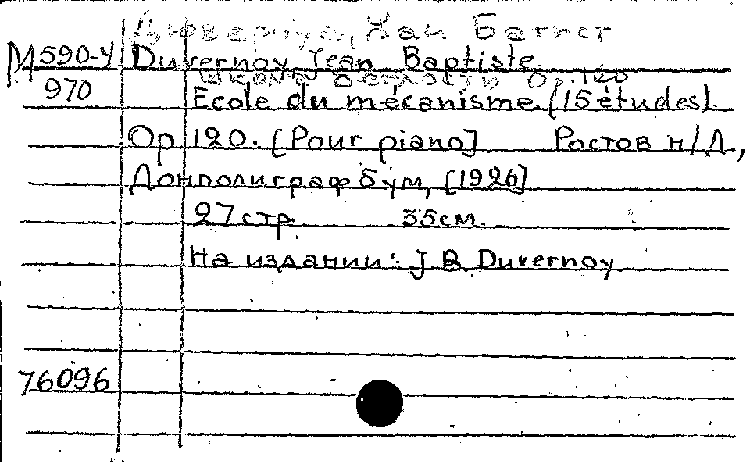 Дювернуа, Жан Батист
М 590-У Duvernoy Jean Baptiste
Школа беглости Op. 120
970 Ecole du mécanisme (15 études)
Op 120. [Pour piano] Ростов н/Д,
Донполиграфбум, [1926]
27 стр 35см.
На издании: J B Duvernoy
76096